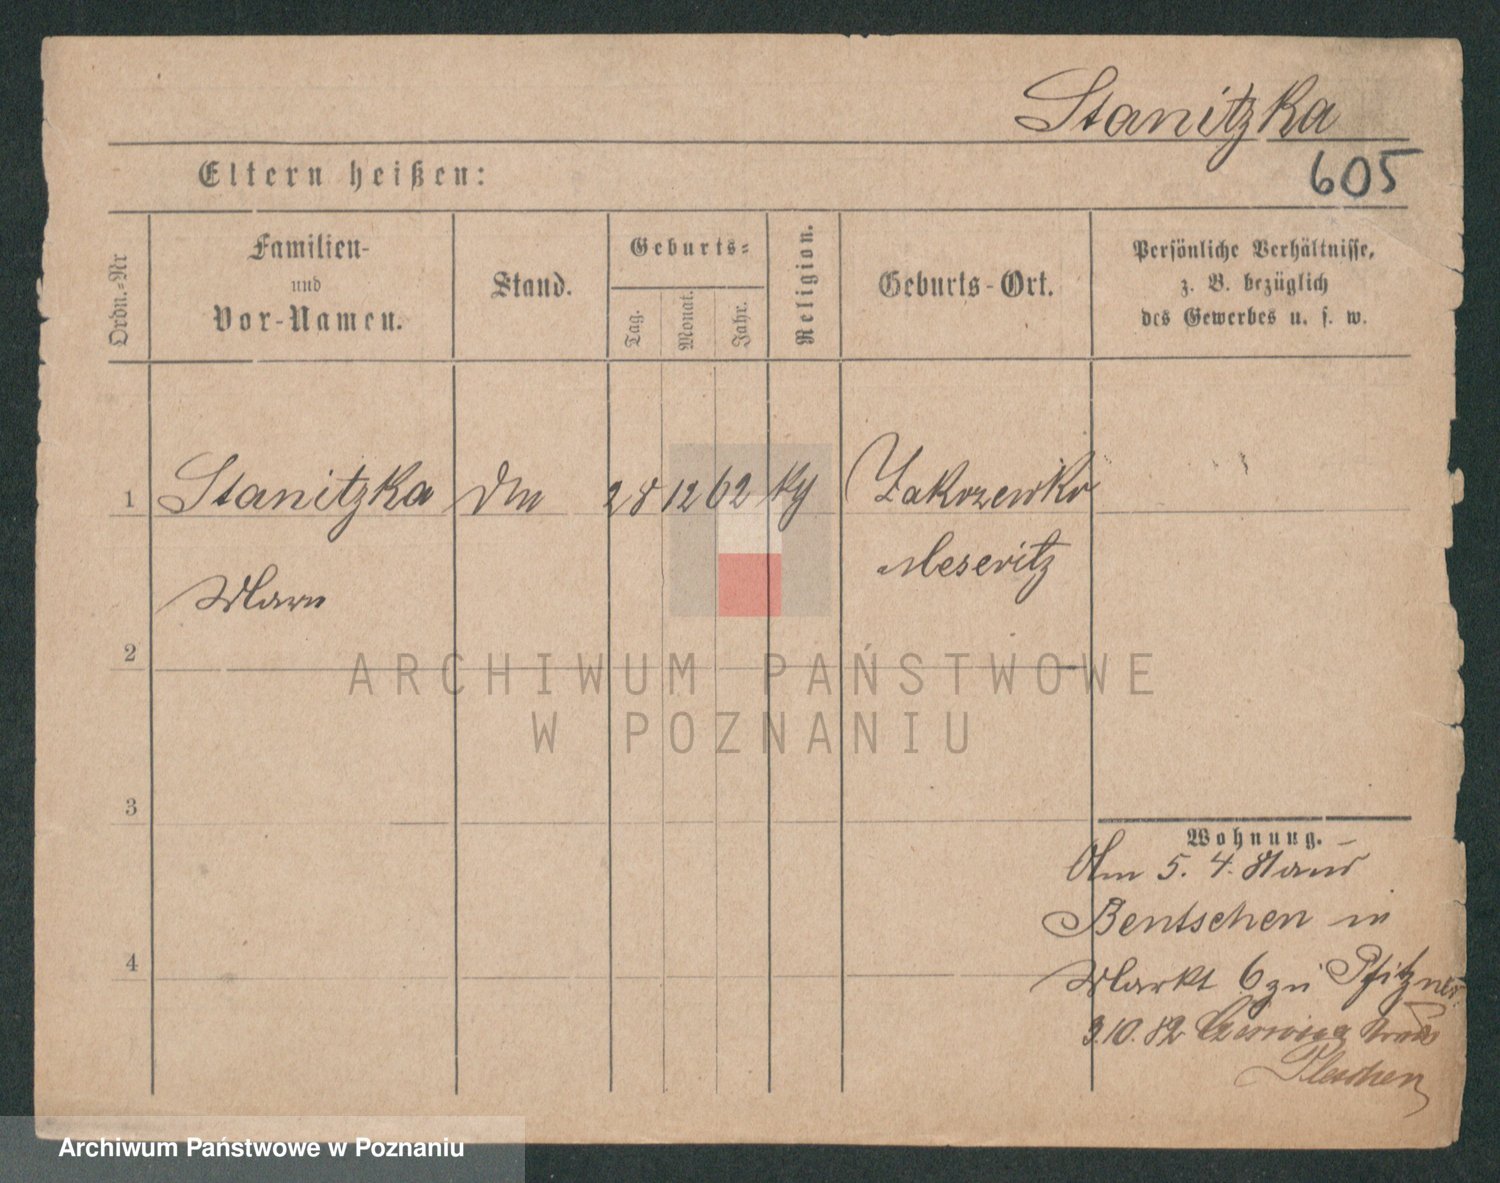 Stanitzka
605
Eltern heißen:
Ordn.-Nr
Familien-
und
Vor-Namen.
Stand.
Geburts-
Tag.
Monat.
Jahr.
Religion.
Geburts-Ort.
Persönliche Verhältnisse,
z. B. bezüglich
des Gewerbes u. s. w.
1 Stanitzka 28 12 62
Meseritz
2
ARCHIWUM PAŃSTWOWE
W POZNANIU
3
Wohnung.
Am 5. 4. 81 aus
Bentschen in
4
Markt 6 zu Pfitzner
3.10.82
Pleschen
Archiwum Państwowe w Poznaniu